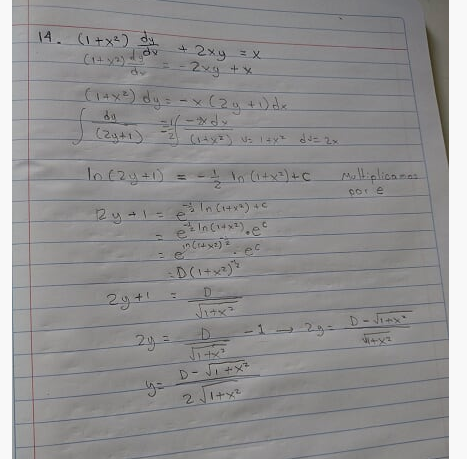 14. (1+x²) dy/dx + 2xy = x
(1+x²) dy/dx = -2xy + x
(1+x²) dy = -x(2y+1)dx
∫ dy/(2y+1) = -1/2 ∫ -2x dx/(1+x²) u = 1+x² du = 2x
ln(2y+1) = -1/2 ln(1+x²)+C Multiplicamos
por e
2y+1 = e^(-1/2 ln(1+x²)+c)
= e^(-1/2 ln(1+x²)) · e^c
= e^(ln(1+x²)^(-1/2)) · e^c
= D(1+x²)^(-1/2)
2y+1 = D/√(1+x²)
2y = D/√(1+x²) - 1 → 2y = (D-√(1+x²))/√(1+x²)
y = (D-√(1+x²))/(2√(1+x²))